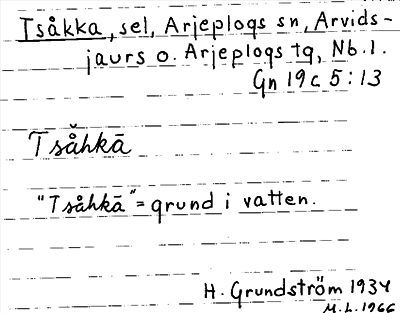 Tsåkka, sel, Arjeplogs sn, Arvids-
jaurs o. Arjeplogs tg, Nb.l.
Gn 19c 5:13
Tså̆hkā
"Tsåhkā" = grund i vatten.
H. Grundström 1934
M.L.1966